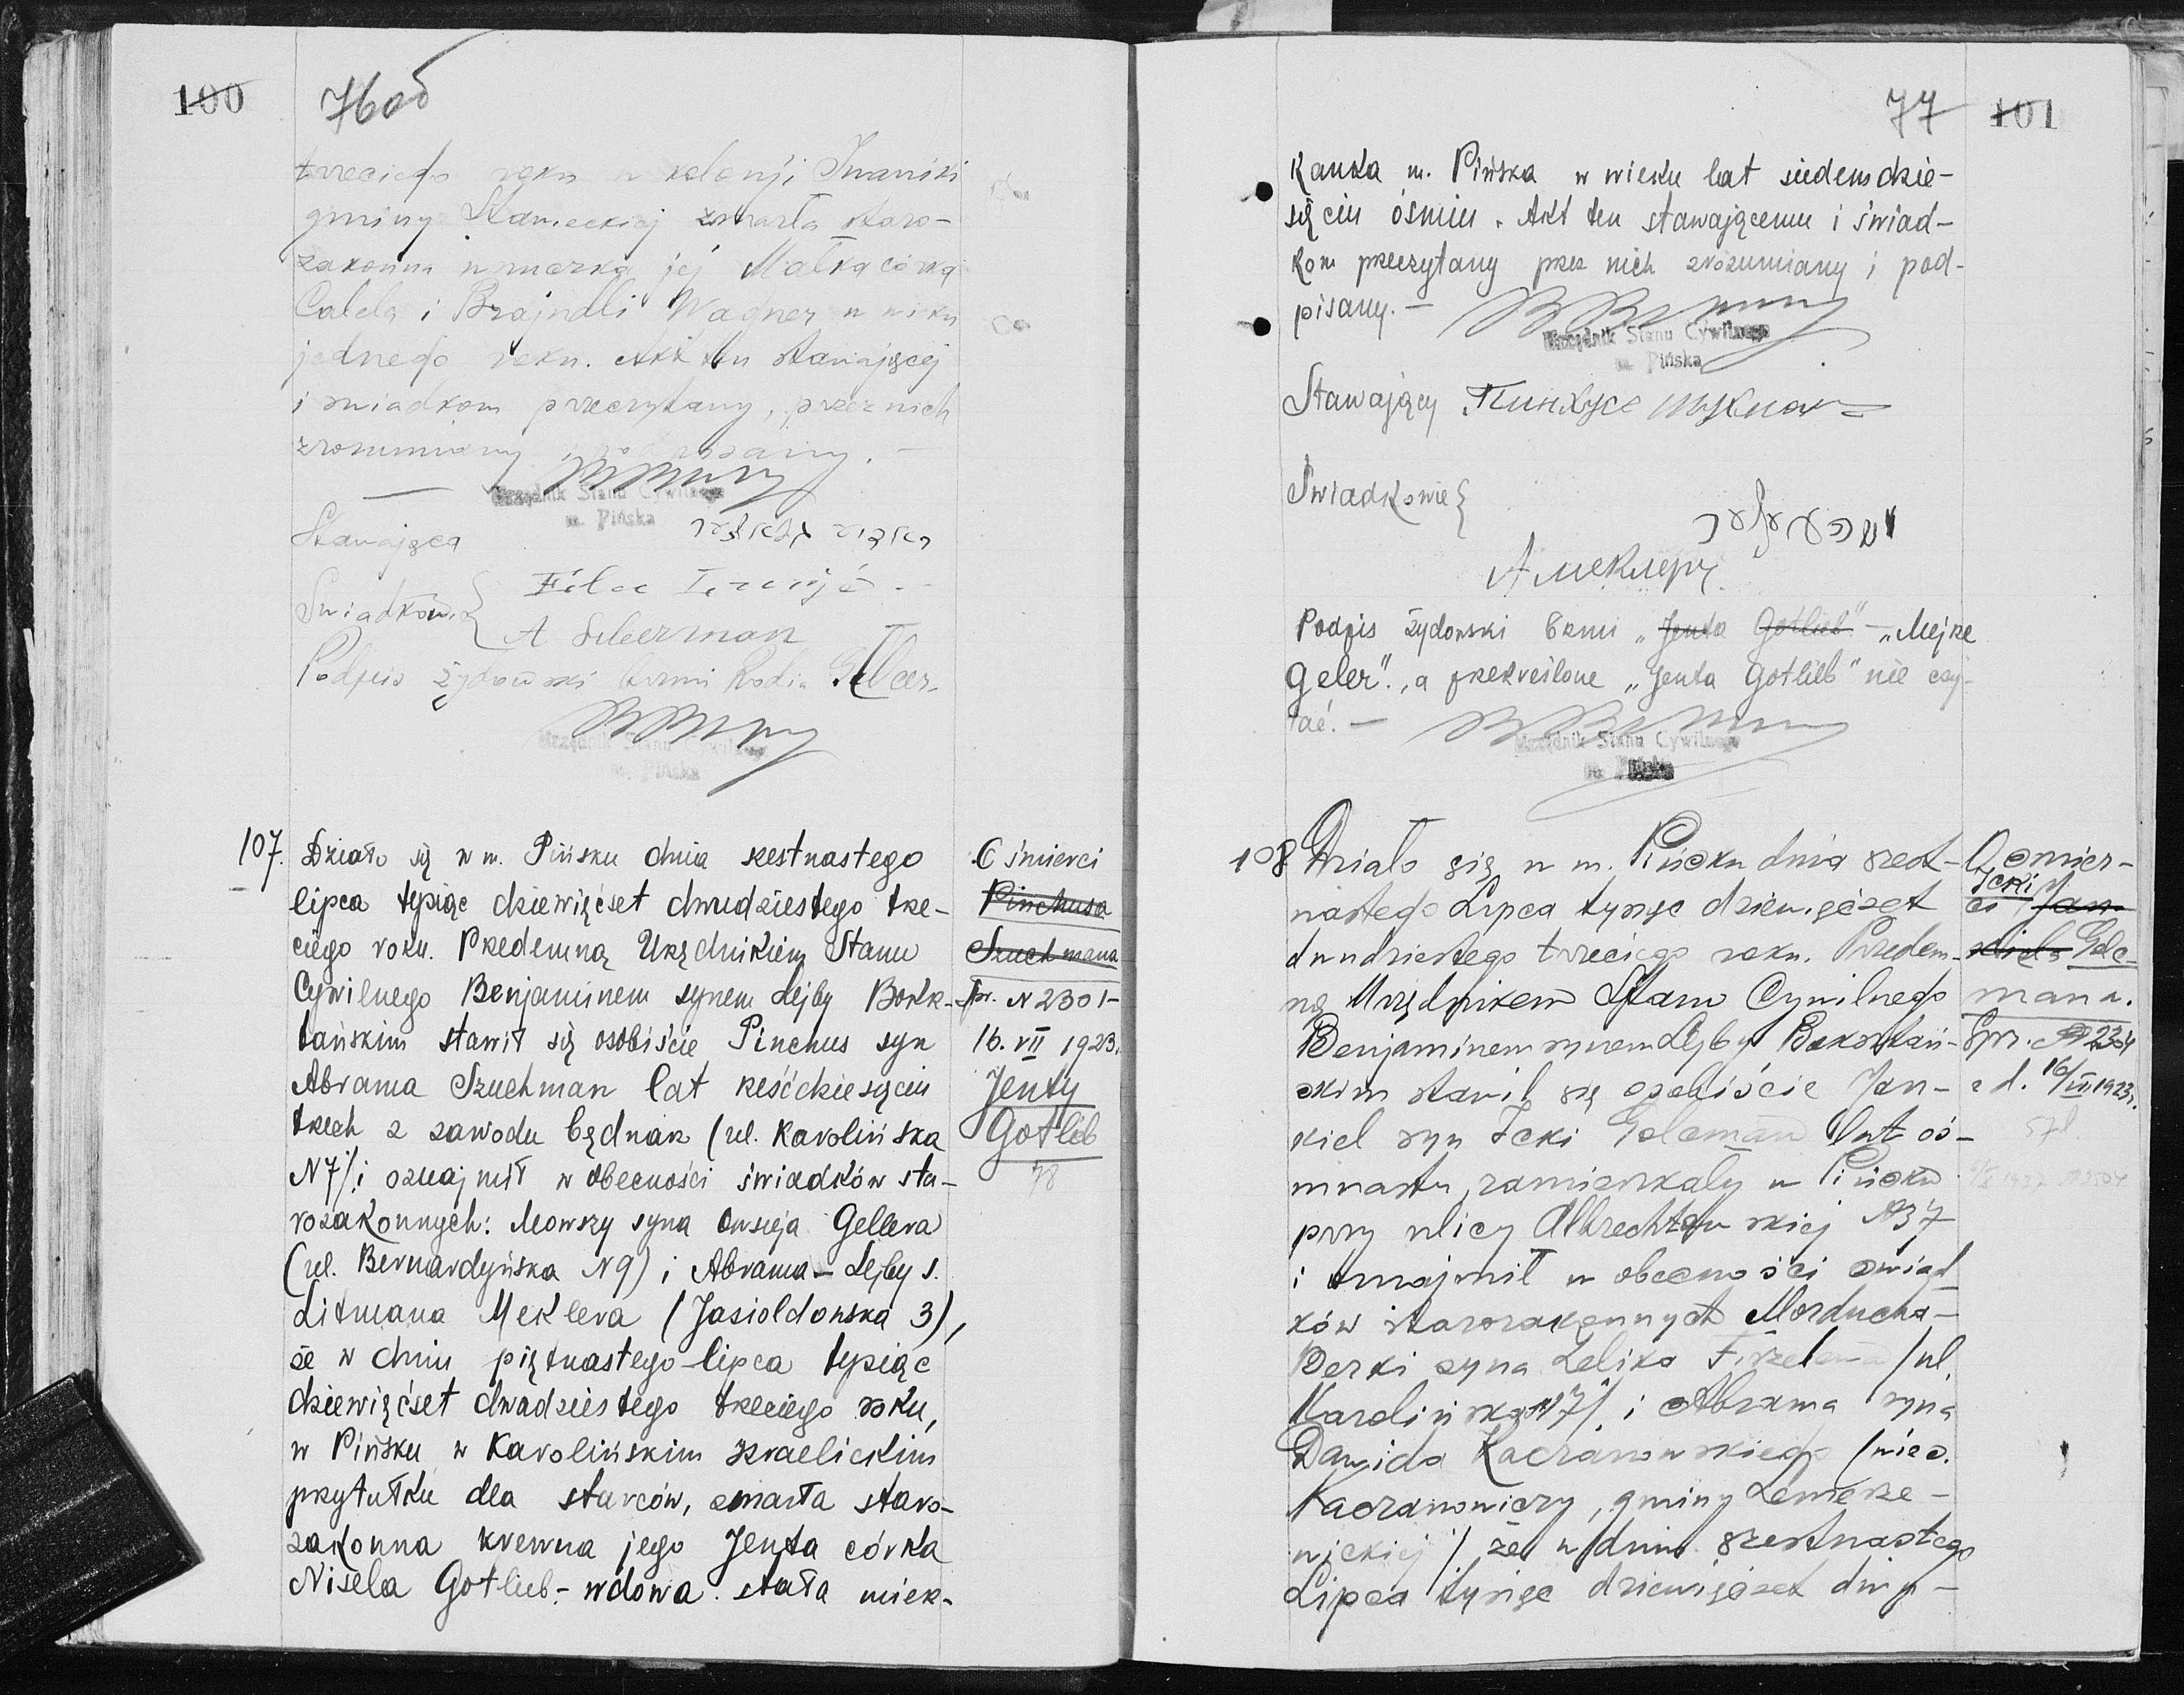 100
76об
trzeciego roku w kolonji Iwaniki
gminy Staweckiej zmarła staro-
zakonna wnuczka jej Małka córka
Calela i Brajndli Wagner w wieku
jednego roku. Akt ten stawającej
i świadkom przeczytany, przez nich
zrozumiany i podpisany. —
Urzędnik Stanu Cywilnego
m. Pińska
Stawająca
Świadkowie
A Silberman
Podpis żydowski brzmi
Urzędnik Stanu Cywilnego
m. Pińska
107. Działo się w m. Pińsku dnia szestnastego
lipca tysiąc dziewięćset dwudziestego trze-
ciego roku. Przedemną Urzędnikiem Stanu
Cywilnego Benjaminem synem Lejby Borksz-
tańskim stawił się osobiście Pinchus syn
Abrama Szuchman lat sześćdziesięciu
trzech z zawodu bednarz (ul. Karolińska
N7/ i oznajmił w obecności świadków sta-
rozakonnych: Mowszy syna Owsieja Gellera
(ul. Bernardyńska N9) i Abrama-Lejby s.
Litmana Meklera (Jasiołdowska 3),
że w dniu piętnastego lipca tysiąc
dziewięćset dwadziestego trzeciego roku,
w Pińsku w Karolińskim izraelickim
przytułku dla starców, zmarła staro-
zakonna krewna jego Jenta córka
Nisela Gotlieb - wdowa stała miesz-
O śmierci
Pinchusa
Szuchmana
Spr. N 2301-
16. VII 1923.
Jenty
Gotlib
78
77
101
kanka m. Pińska w wieku lat siedemdzie-
sięciu ośmiu. Akt ten stawającemu i świad-
kom przeczytany przez nich zrozumiany i pod-
pisany. —
Urzędnik Stanu Cywilnego
m. Pińska
Stawający Пинхусъ Шухман
Świadkowie
А Меклеръ
Podpis żydowski brzmi „Jenta Gotlieb" — „Mejze
Geler"., a przekreślone „Jenta Gotlieb" nie czy-
tać. —
Urzędnik Stanu Cywilnego
m. Pińska
108 Działo się w m. Pińsku dnia szest-
nastego Lipca tysiąc dziewięćset
dwudziestego trzeciego roku. Przedem-
ną Urzędnikem Stanu Cywilnego
Benjaminem synem Lejby Borksztań-
skim stawił się osobiście Jan-
kiel syn Icki Golcman lat oś-
mnastu, zamieszkały w Pińsku
przy ulicy Albrechtowskiej N37
i oznajmił w obecności świad-
ków starozakonnych Morducha-
Berki syna Zelika /ul.
Karolińska N7/ i Abrama syna
Dawida Kaczanowskiego (wieś.
Kaczanowiczy, gminy Lemesze-
wickiej/ że w dniu szestnastego
Lipca tysiąc dziewięćset dwu-
O śmier-
ci Icki Jan-
kiela Golc-
mana.
Spr. N 2304
z d. 16/VII 1923 r.
57 l.